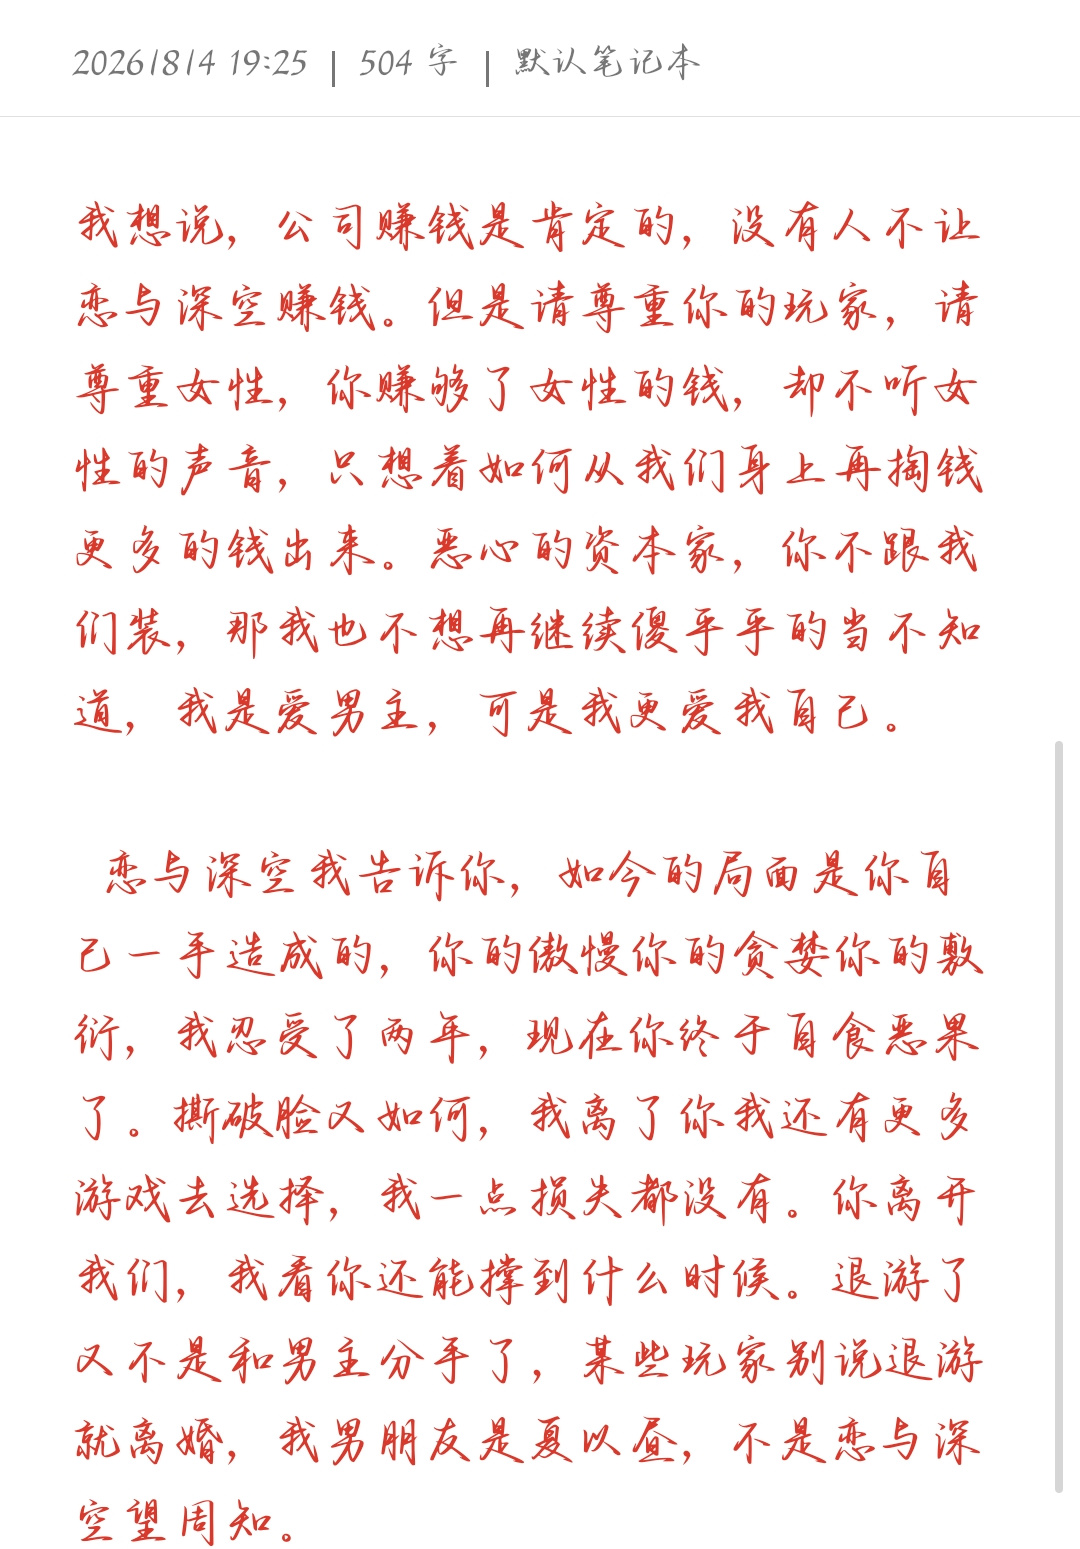 2026/8/4 19:25 | 504 字 | 默认笔记本
我想说，公司赚钱是肯定的，没有人不让
恋与深空赚钱。但是请尊重你的玩家，请
尊重女性，你赚够了女性的钱，却不听女
性的声音，只想着如何从我们身上再掏钱
更多的钱出来。恶心的资本家，你不跟我
们装，那我也不想再继续傻乎乎的当不知
道，我是爱男主，可是我更爱我自己。
恋与深空我告诉你，如今的局面是你自
己一手造成的，你的傲慢你的贪婪你的敷
衍，我忍受了两年，现在你终于自食恶果
了。撕破脸又如何，我离了你我还有更多
游戏去选择，我一点损失都没有。你离开
我们，我看你还能撑到什么时候。退游了
又不是和男主分手了，某些玩家别说退游
就离婚，我男朋友是夏以昼，不是恋与深
空望周知。